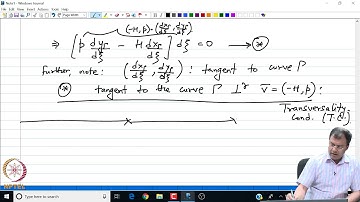 Note1 - Windows Journal
(-H, p) · (dxΓ/dξ, dyΓ/dξ)
⇒ [p dyΓ/dξ - H dxΓ/dξ] dξ = 0 → ⊛
Further, note: (dxΓ/dξ, dyΓ/dξ): tangent to curve Γ
⊛ tangent to the curve Γ ⊥r v = (-H, p):
Transversality
Cond. (T.C.)
NPTEL